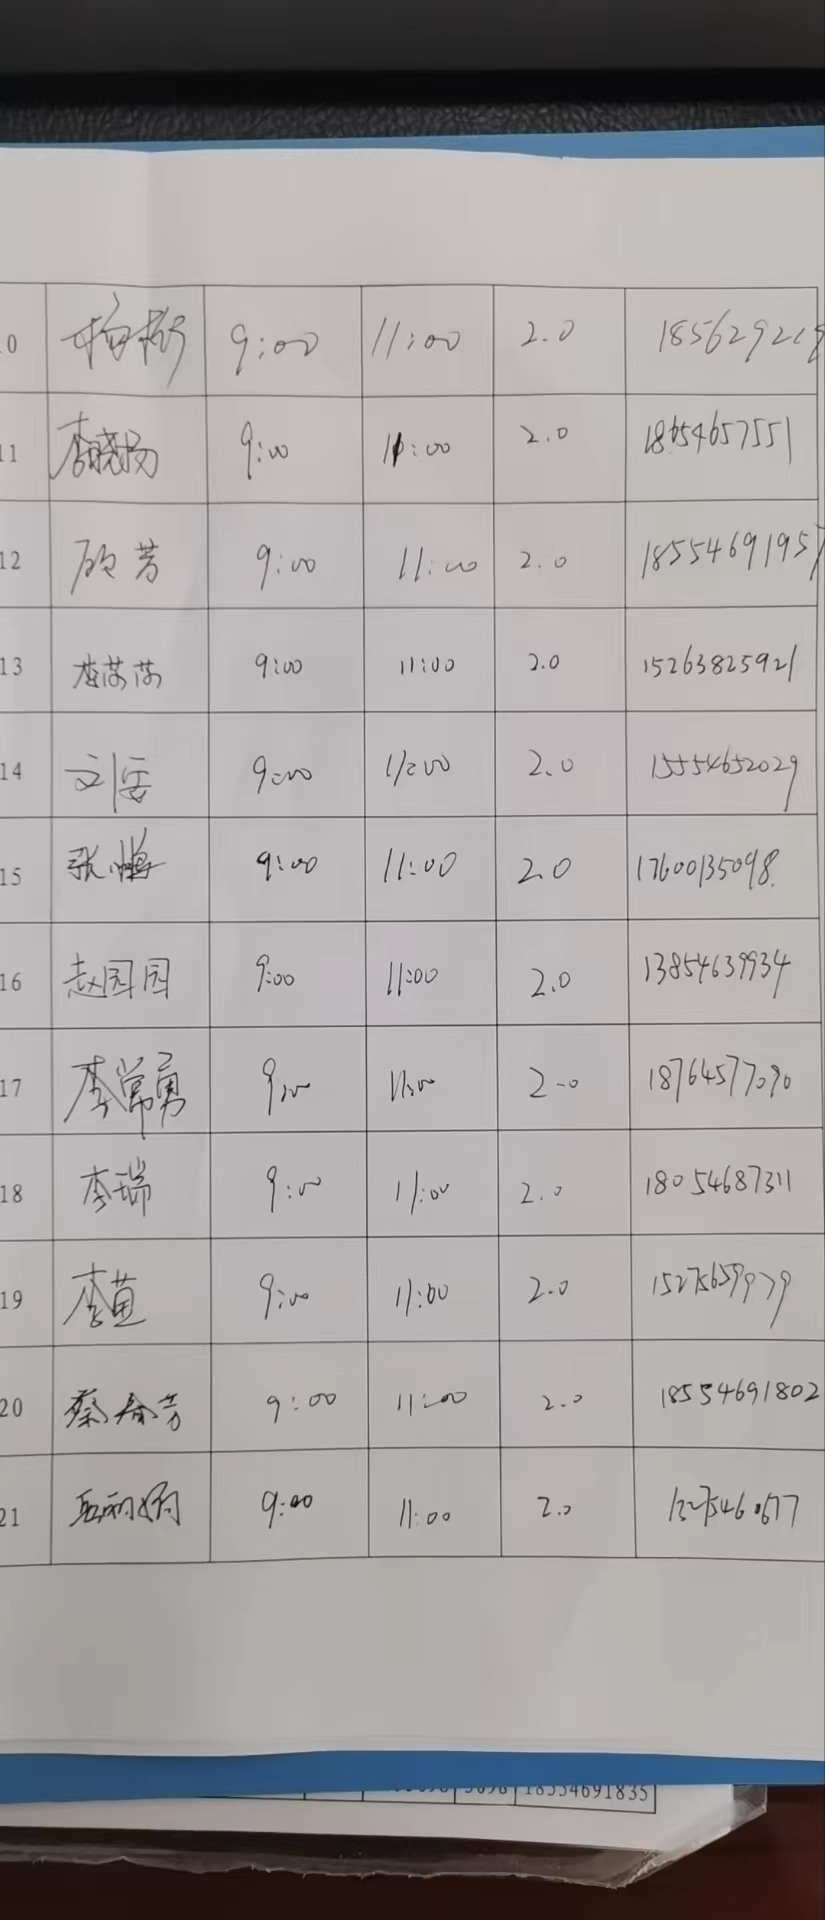 0 杨彬 9:00 11:00 2.0 185629219
11 李晓杨 9:00 11:00 2.0 18654657551
12 顾芳 9:00 11:00 2.0 18554691957
13 李芮芮 9:00 11:00 2.0 15263825921
14 刘雯 9:00 11:00 2.0 15554652029
15 张鹏 9:00 11:00 2.0 17600135098
16 赵园园 9:00 11:00 2.0 13854639934
17 李常勇 9:00 11:00 2.0 18764577090
18 李瑞 9:00 11:00 2.0 18054687311
19 李苗 9:00 11:00 2.0 15275659979
20 蔡春芳 9:00 11:00 2.0 18554691802
21 9:00 11:00 2.0
18554691835